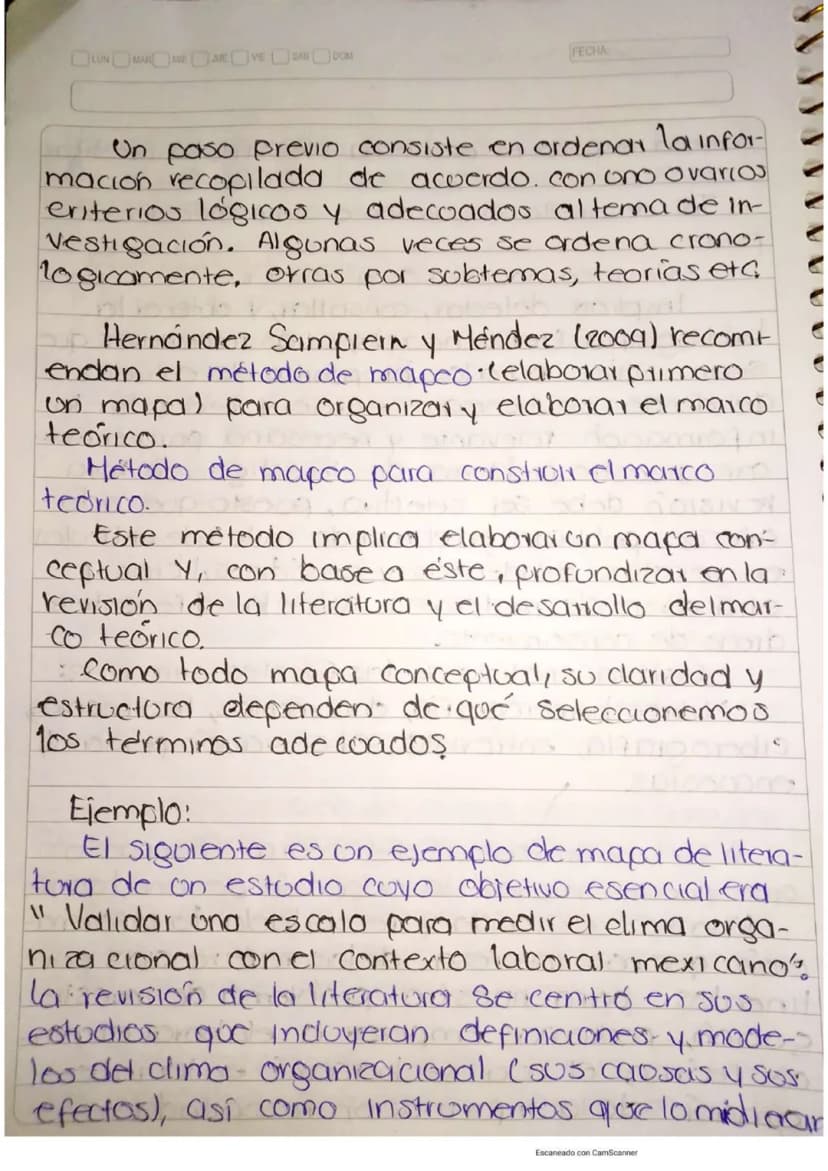 LUN MAR MIE JUE VIE SAB DOM
FECHA:
Un paso previo consiste en ordenar la infor-
mación recopilada de acuerdo. con uno o varios
criterios lógicos y adecuados al tema de in-
vestigación. Algunas veces se ordena crono-
logicamente, otras por subtemas, teorías etc.
Hernández Sampieri y Méndez (2009) recomi-
endan el método de mapeo (elaborar primero
un mapa) para organizar y elaborar el marco
teórico.
Método de mapeo para construir el marco
teórico.
Este método implica elaborar un mapa con-
ceptual y, con base a éste, profundizar en la
revisión de la literatura y el desarrollo del mar-
co teórico.
Como todo mapa conceptual, su claridad y
estructura dependen de qué seleccionemos
los términos adecuados
Ejemplo:
El siguiente es un ejemplo de mapa de litera-
tura de un estudio cuyo objetivo esencial era
" Validar una escala para medir el clima orga-
nizacional con el contexto laboral mexicano".
la revisión de la literatura se centró en sus
estudios que incluyeran definiciones y mode-
los del clima organizacional (sus causas y sus
efectos), así como instrumentos que lo midieran
Escaneado con CamScanner